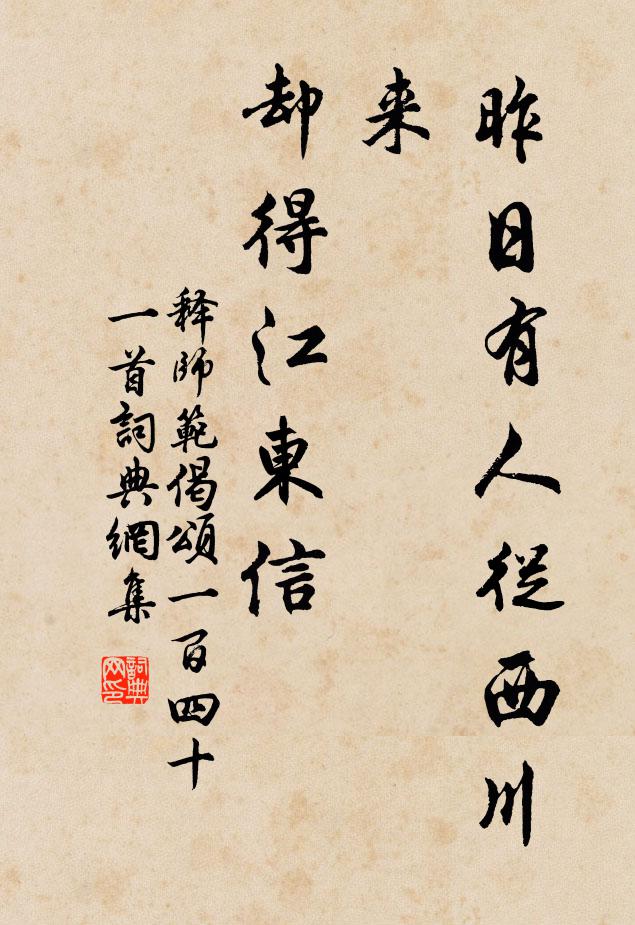 昨日有人從西川
来
却得江東信
释師範偈頌一百四十
一首詞典網集
詞典
网印